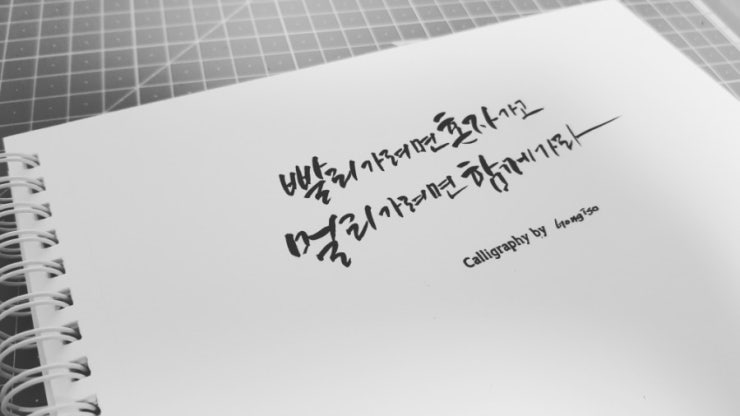 빨리 가려면 혼자 가고
멀리 가려면 함께 가라
Calligraphy by Hongiso